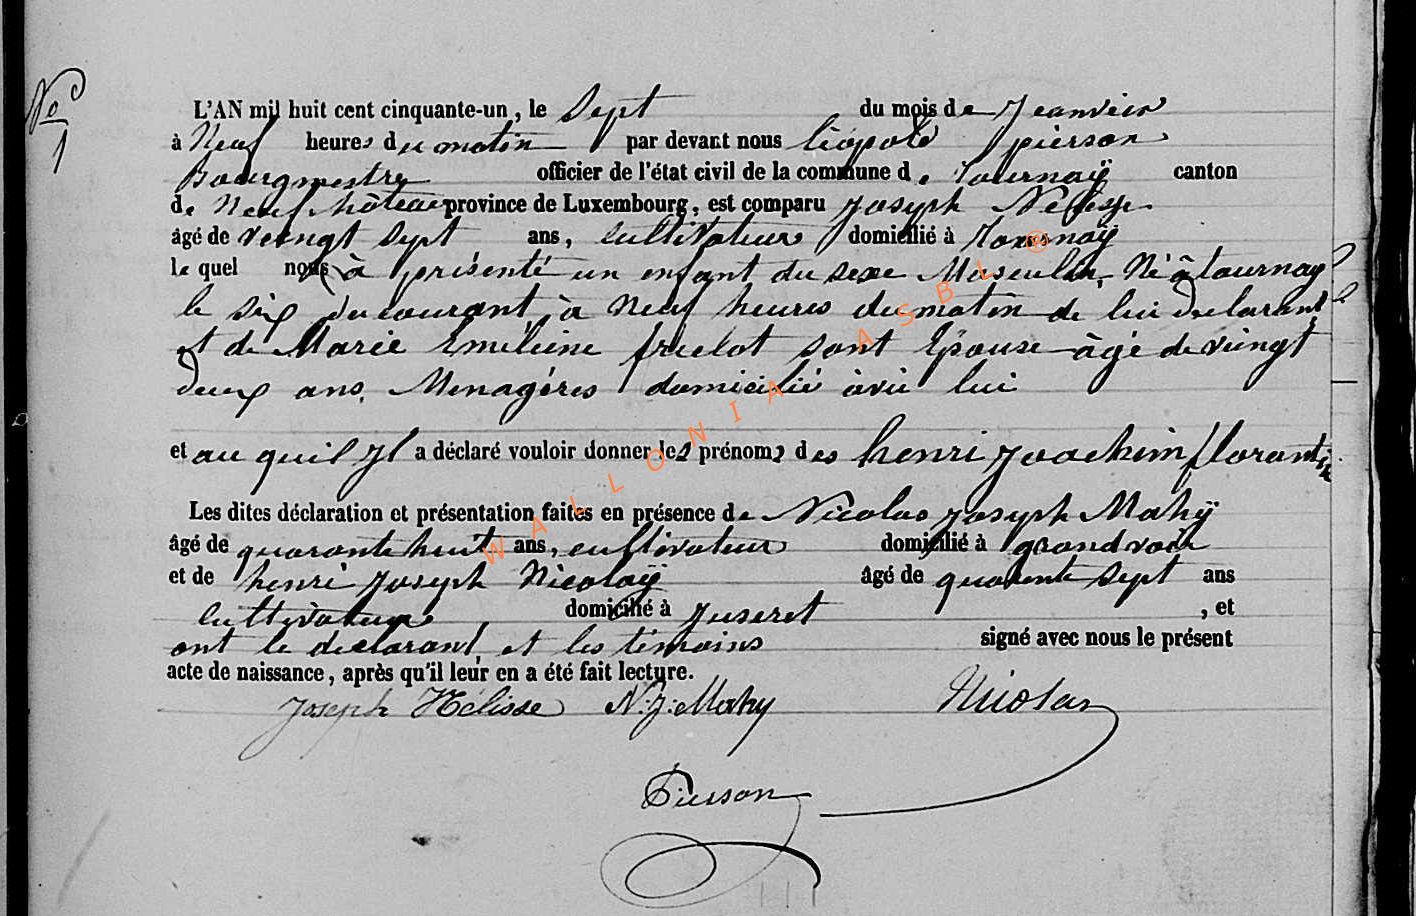 N° 1
L'AN mil huit cent cinquante-un, le Sept du mois de Jeanvier
à Neuf heures du matin par devant nous Léopold pierson
Bourgmestre officier de l'état civil de la commune de Tournaÿ canton
de Neufchâteau province de Luxembourg, est comparu Joseph
âgé de veingt Sept ans, cultivateur domicilié à Tournaÿ
le quel nous à présenté un enfant du sexe Masculin, Né à tournay
le six du courant, à neuf heures du matin de lui declarant
et de Marie Eméliene sont Epouse âgé de veingt
deux ans, Menagéres domicilié àvic lui
et au quil Jl a déclaré vouloir donner les prénoms des henri Joachim
Les dites déclaration et présentation faites en présence de Nicolas Joseph Mahÿ
âgé de quarante huit ans, cultivateur domicilié à grandvoir
et de henri Joseph Nicolaÿ âgé de quarente Sept ans
cultivateur, domicilié à Juseret, et
ont le declarant, et les témoins signé avec nous le présent
acte de naissance, après qu'il leur en a été fait lecture.
Joseph Hélisse N: J: Mahy
Pierson
WALLONIA ASBL ®